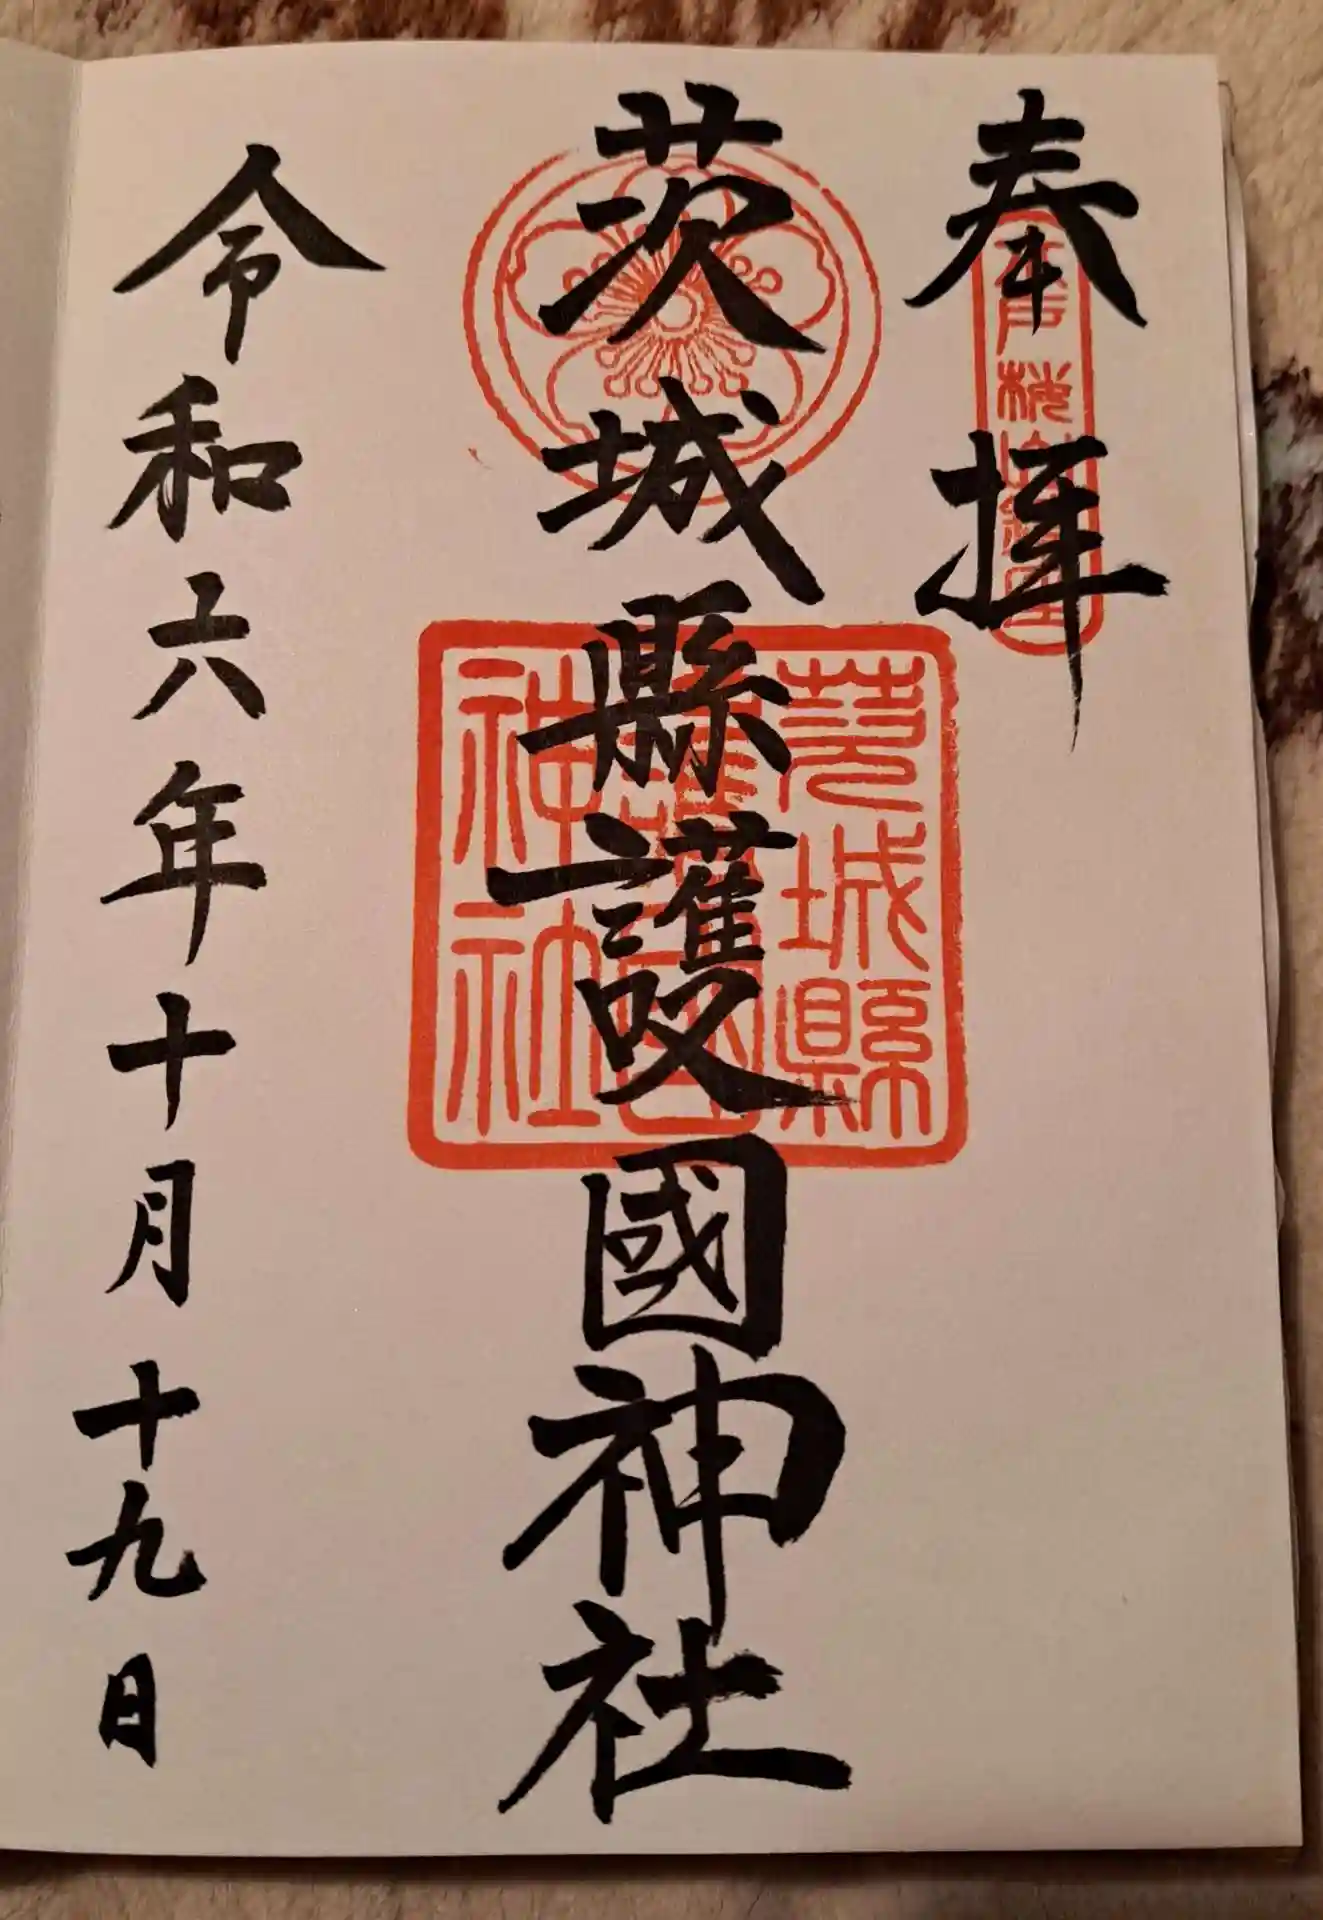 奉拝
茨城縣護國神社
令和六年十月十九日
茨城縣
護國
神社